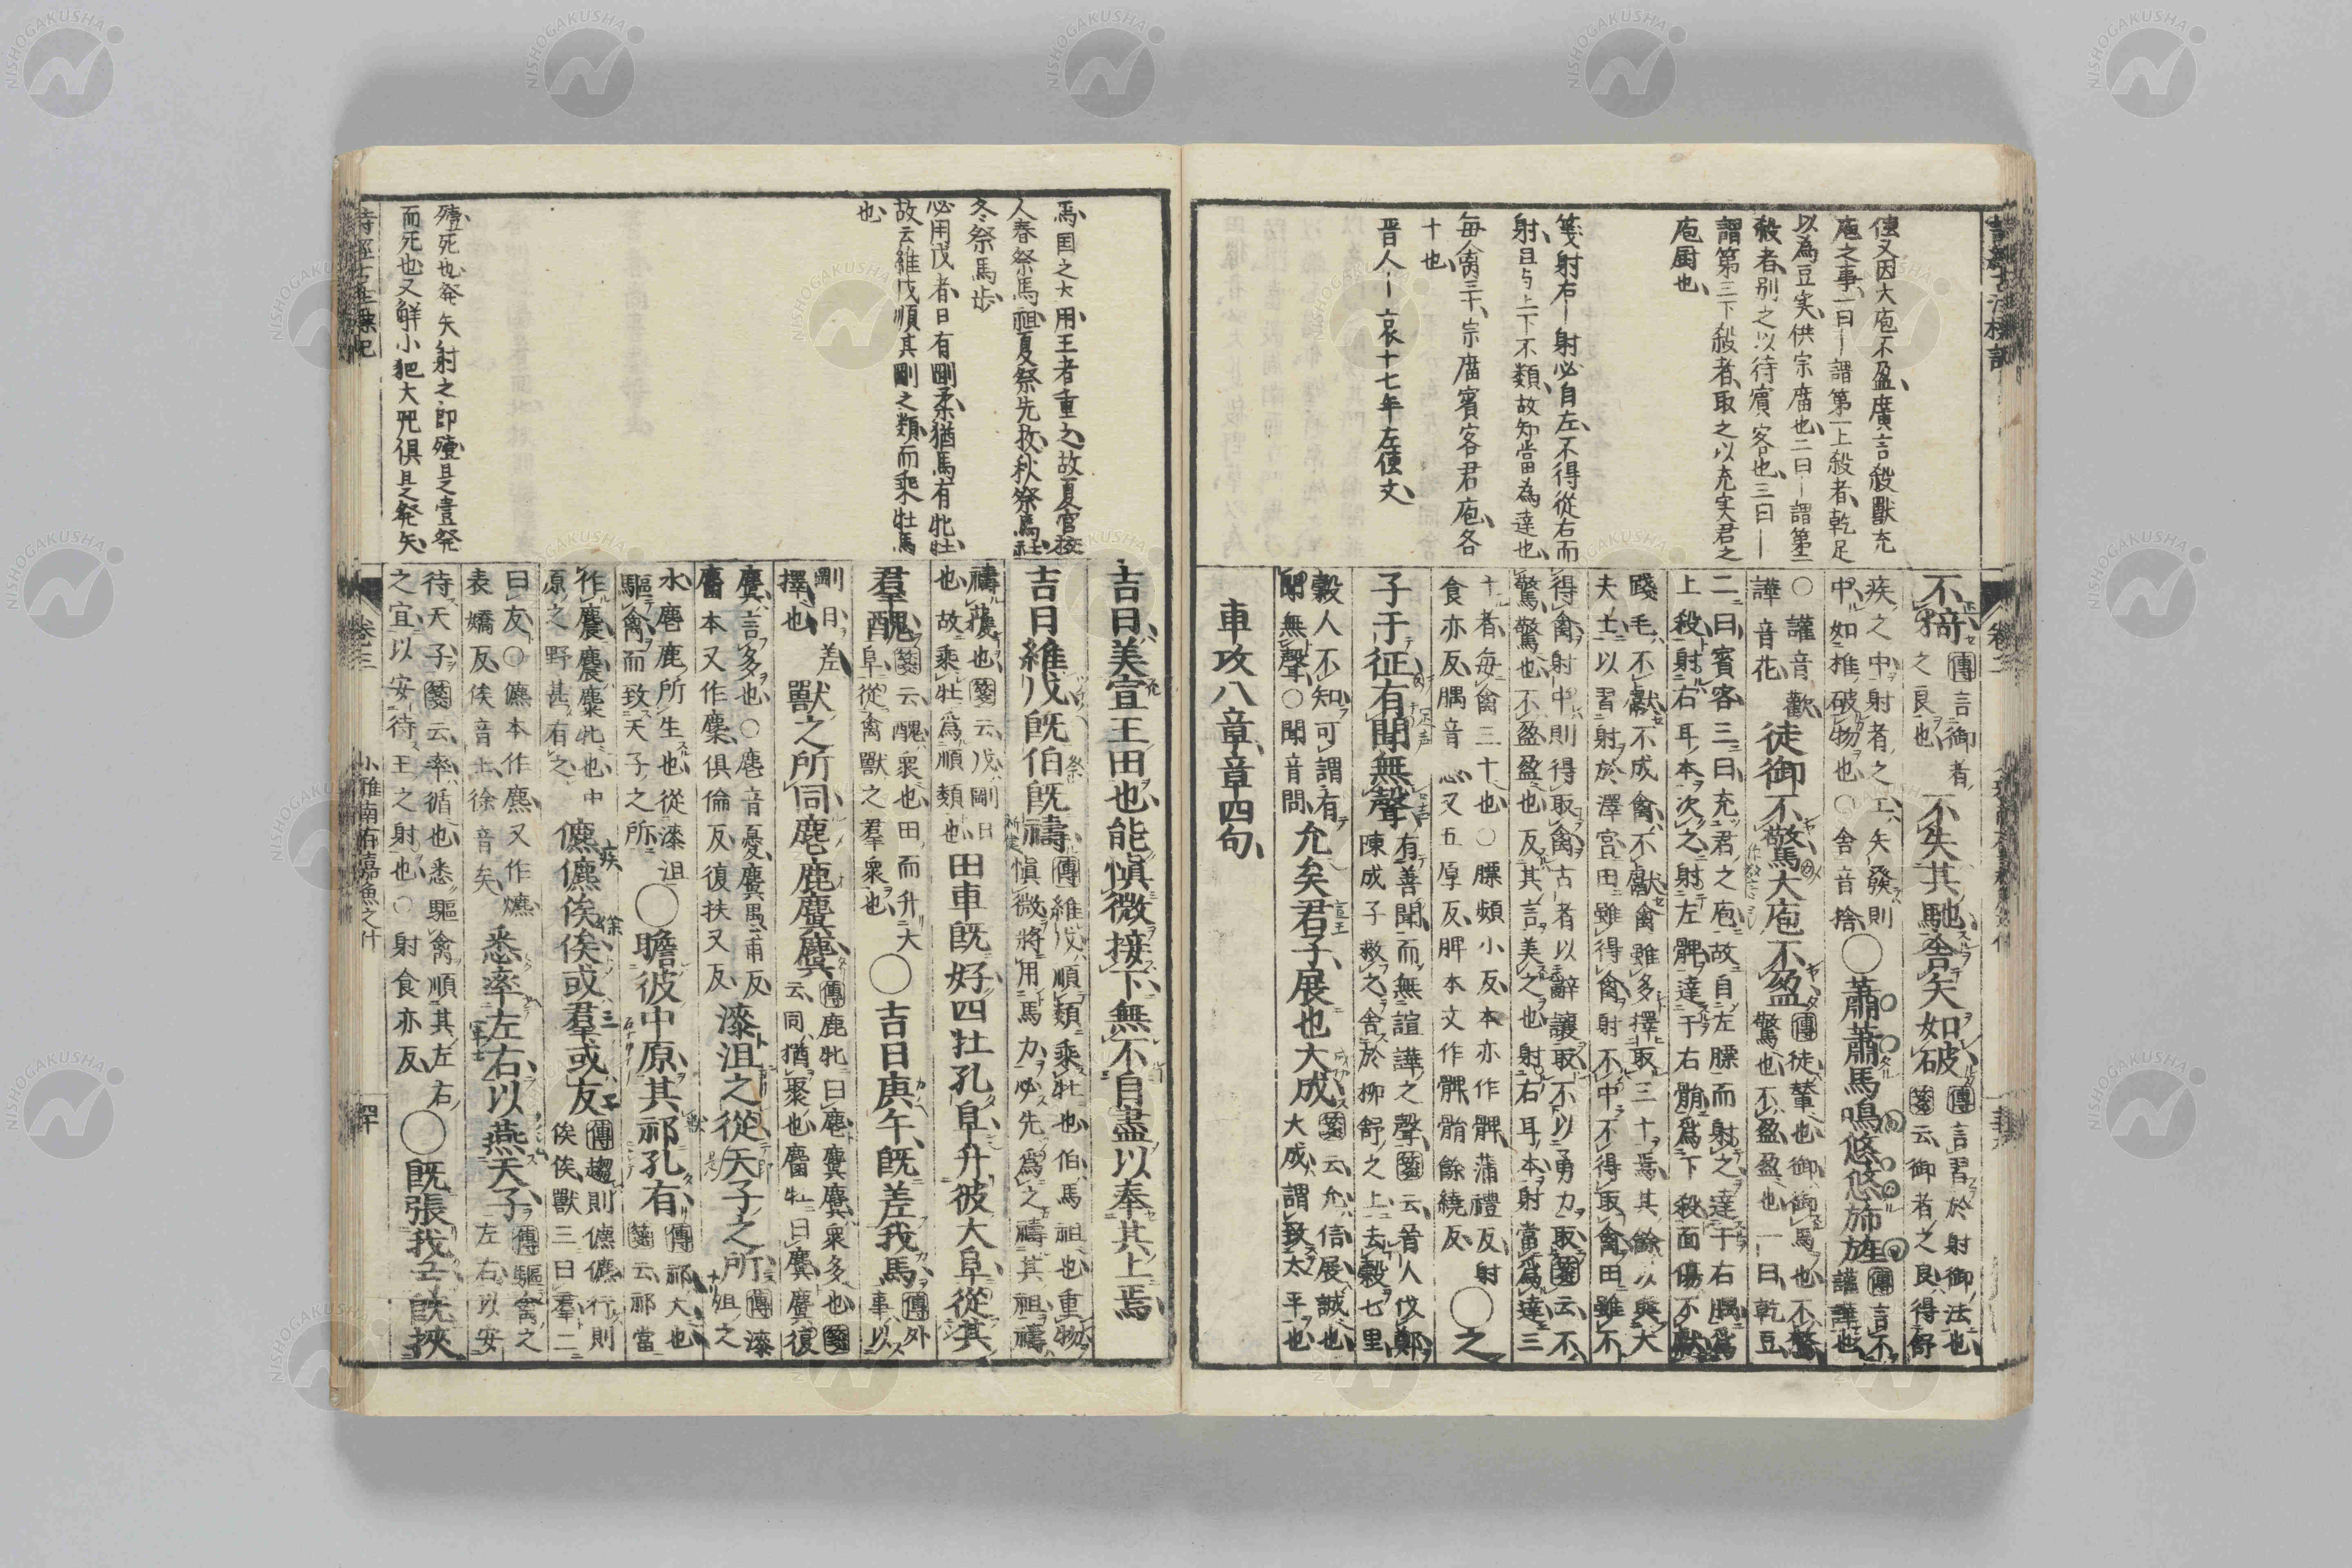 儘又因大庖不盈廣言殺獸充
庖之事一曰｜謂第一上殺者、乾足
以為豆实、供宗庿也、二曰｜謂第二
殺者、別之以待賓客也、三曰｜
謂第三下殺者、取之以充实君之
庖厨也、
箋射右｜射必自左、不得從右而
射、且与上下不類、故知當為達也、
每禽三十、宗庿賓客君庖、各
十也、
晋人｜哀十七年左傳文、
不猗、傳言御者、
之良也
不失其馳舍矢如破、傳言習於射御法也、
箋云御者之良、得舒
疾之中、射者之工、矢發則
中、如推破物也、○舍音捨、
○蕭蕭馬鳴悠悠斾旌傳言不
讙譁也
○讙音歡
譁音花、
徒御不驚大庖不盈傳徒輦也御、御馬也不驚、
驚也、不盈、盈也一曰乾豆
二曰賓客三曰充君之庖、故自左膘而射之達于右腢爲
上殺、射右耳本、次之射左髀、達于右䯚爲下殺、面傷不獻
踐毛、不獻不成禽、不獻禽雖多擇取三十焉、其餘以與大
夫士、以習射於澤宮田雖得禽射不中、不得取禽田雖不
得禽射中則得取禽古者以辭讓取不以勇力取箋云不
驚驚也不盈盈也反其言美之也射右耳本射當爲達三
十者、每禽三十也○膘頻小反本亦作髀蒲禮反、射
食亦反、腢音
又五厚反髀本文作䯚餘繞反
○之
子于征有聞無聲、有善聞而無諠譁之聲箋云晉人伐鄭
陳成子救之舍於柳舒之上去穀七里
穀人不知可謂有
聞無聲○聞音問
允矣君子展也大成箋云允信展誠也
大成謂致太平也
車攻八章章四句、
馬国之大用王者重之、故夏官挍
人春祭馬祖、夏祭先牧、秋祭馬社、
冬祭馬步
必用戊者、日有剛柔、猶馬有牝牡
故云維戊順其剛之類而乘牡馬
也
殪死也、発矢射之、即殪是壹発
而死也、又解小豝大兕俱是発矢
吉日、美宣王田也能愼微接下、無不自盡以奉其上焉
吉日維戊既伯既禱傳維戊順類乘牡也伯馬祖也重物
愼微將用馬力必先爲之禱其祖禱
禱獲也箋云戊剛日
也故乘牡爲順類也
田車既好四牡孔阜升彼大阜從其
羣醜箋云醜衆也田而升大
阜從禽獸之羣衆也
○吉日庚午既差我馬傳外
事以
剛日、差
擇也
獸之所同麀鹿麌麌傳鹿牝曰麀麌麌衆多也箋
云同猶聚也麕牡曰麌麌復
麌言多也○麀音憂麌愚甫反
麕本又作麇俱倫反復扶又反
漆沮之從天子之所傳漆沮之
水麀鹿所生也從漆沮
驅禽而致天子之所
○瞻彼中原其祁孔有傳祁大也
箋云祁當
作麎麎麋牝也中
原之野甚有之
儦儦俟俟或羣或友傳趨則儦儦行則
俟俟獸三曰羣二
曰友○儦本作麃又作爊
表嬌反俟音士徐音矣
悉率左右以燕天子傳驅禽之
左右以安
待天子箋云率循也悉驅禽順其左右
之宜以安待王之射也○射食亦反
○既張我弓既挾
卷三
小雅南有嘉魚之什